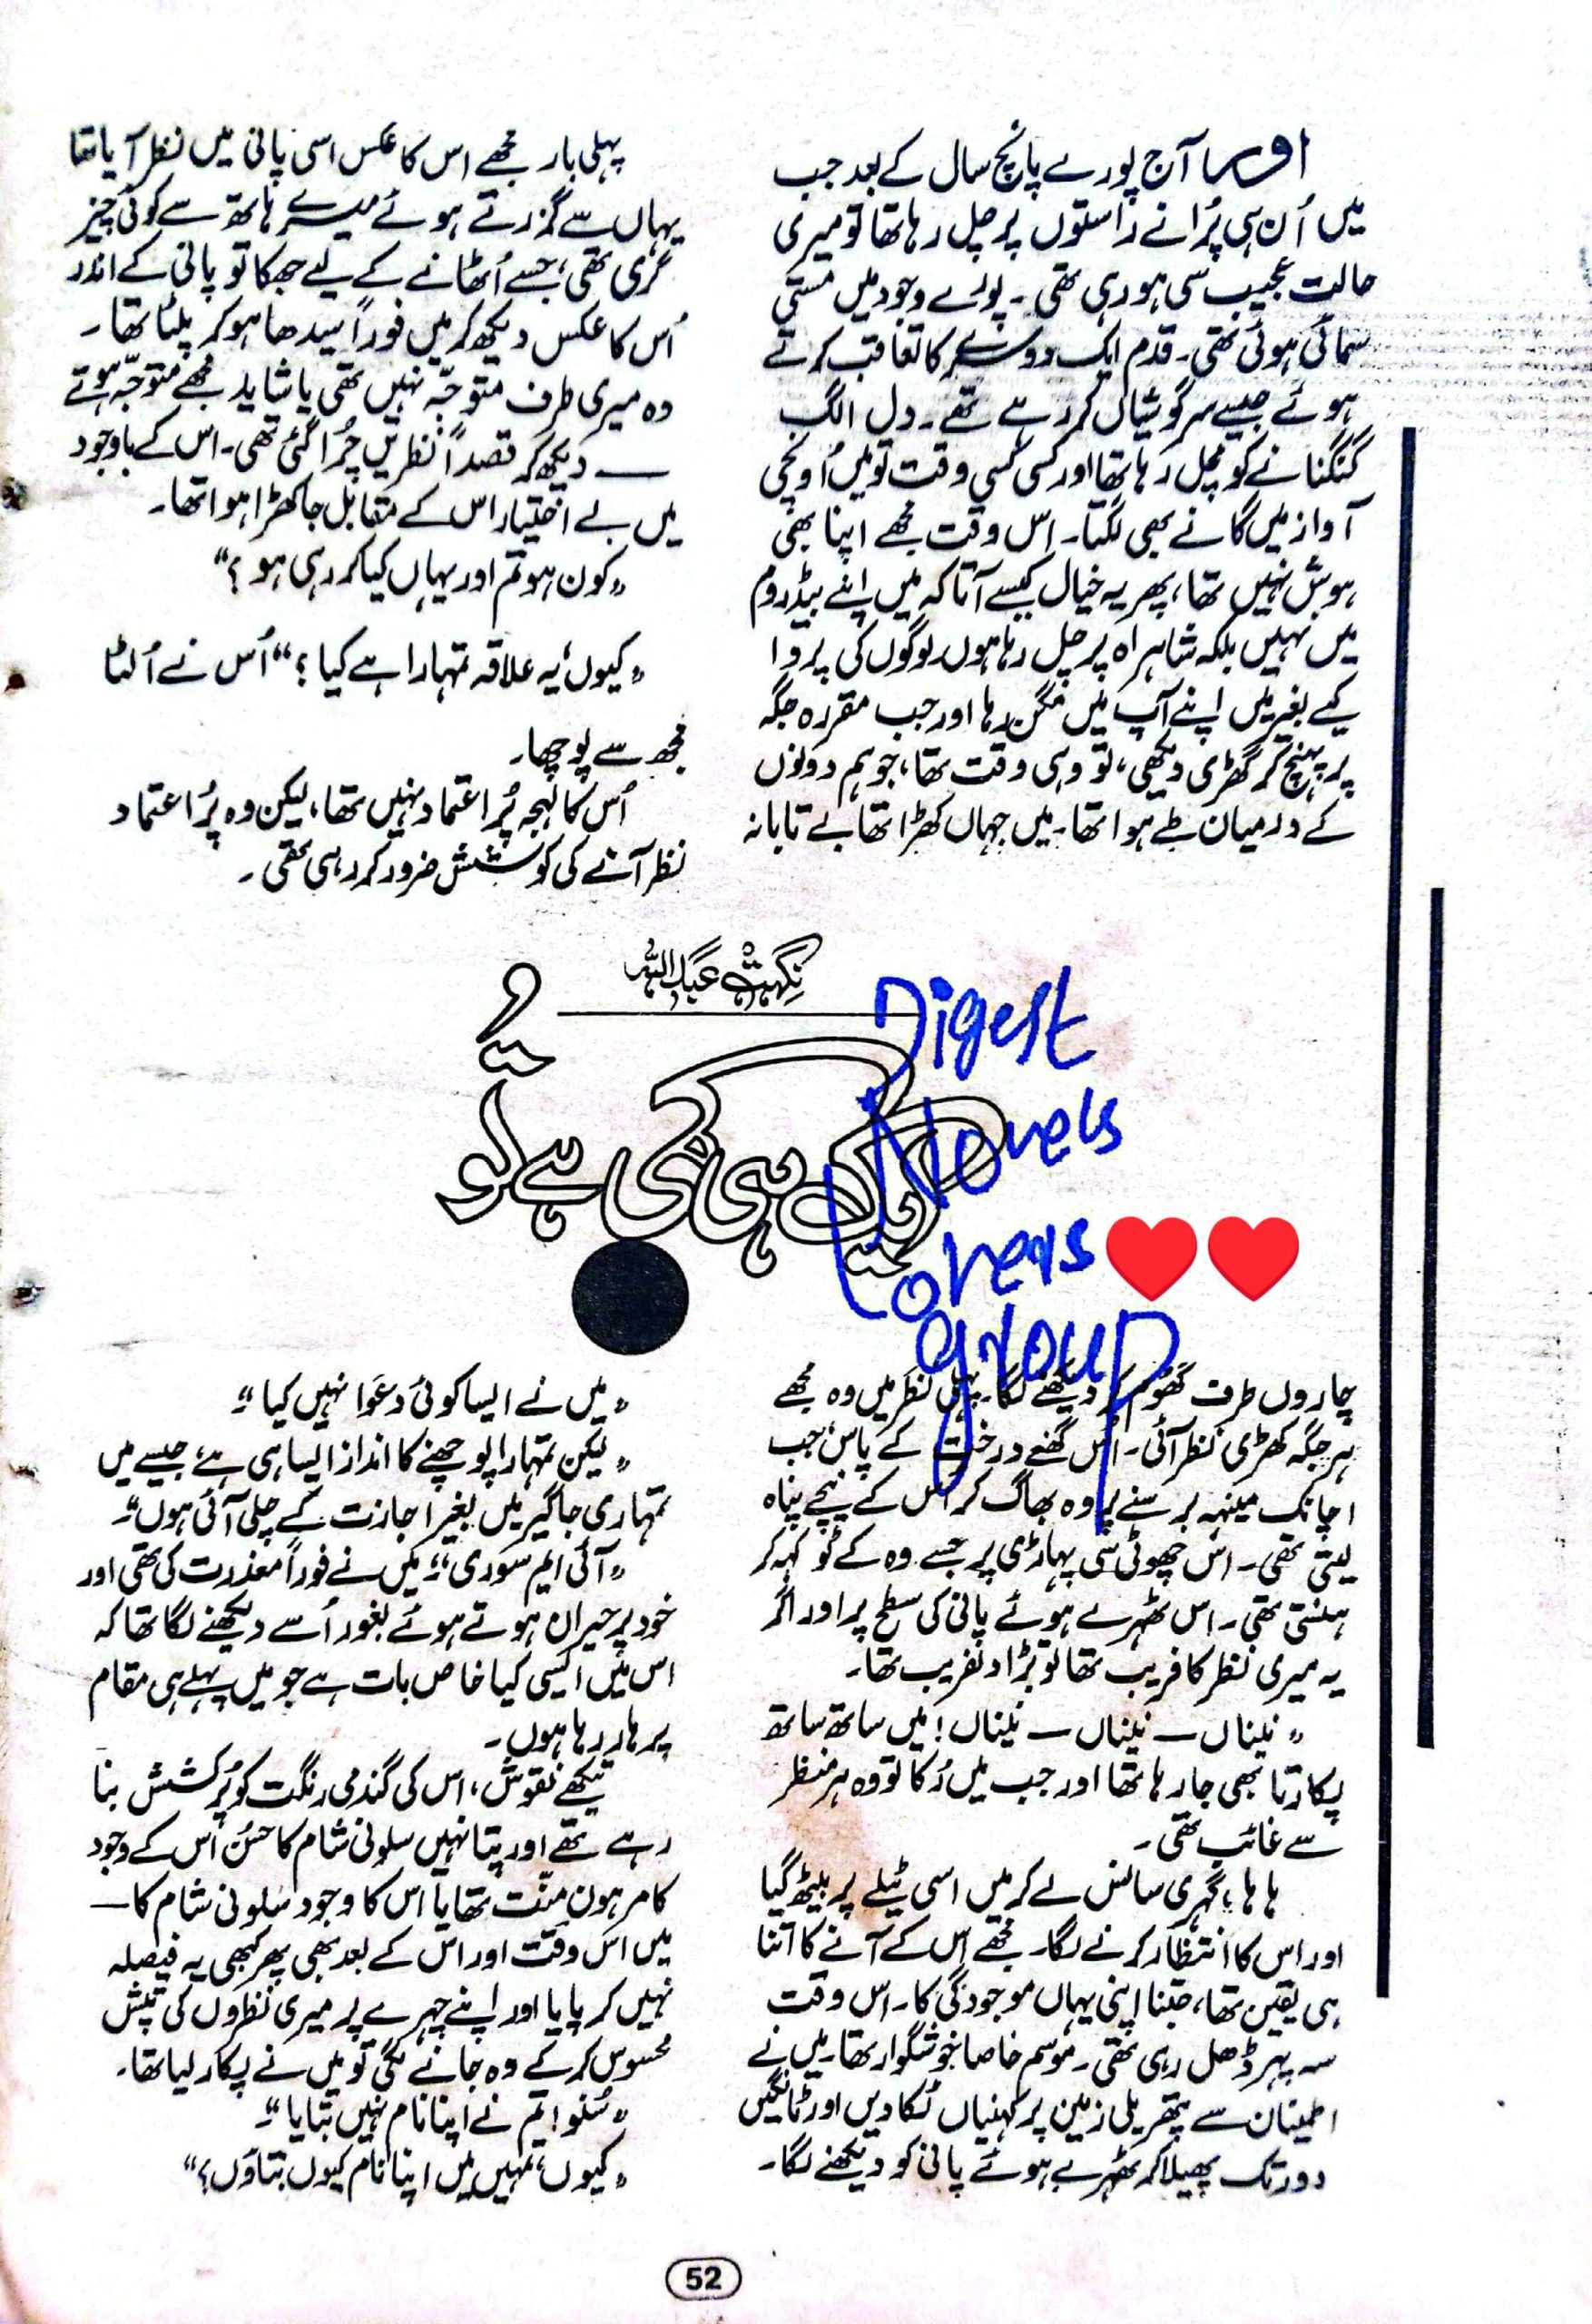 اور آج پورے پانچ سال کے بعد جب
میں اُن ہی پُرانے راستوں پر چل رہا تھا تو میری
حالت عجیب سی ہو رہی تھی۔ پورے وجود میں مستی
سمائی ہوئی تھی۔ قدم ایک دوسرے کا تعاقب کرتے
ہوئے جیسے سرگوشیاں کر رہے تھے۔ دل الگ
گنگنانے کو مچل رہا تھا اور کسی کسی وقت تو میں اُونچی
آواز میں گانے بھی لگتا۔ اس وقت مجھے اپنا بھی
ہوش نہیں تھا، پھر یہ خیال کیسے آتا کہ میں اپنے بیڈ روم
میں نہیں بلکہ شاہراہ پر چل رہا ہوں۔ لوگوں کی پروا
کیے بغیر میں اپنے آپ میں مگن رہا اور جب مقررہ جگہ
پر پہنچ کر گھڑی دیکھی، تو وہی وقت تھا، جو ہم دونوں
کے درمیان طے ہوا تھا۔ میں جہاں کھڑا تھا بے تابانہ
پہلی بار مجھے اس کا عکس اسی پانی میں نظر آیا تھا
یہاں سے گزرتے ہوئے میرے ہاتھ سے کوئی چیز
گری تھی، جسے اُٹھانے کے لیے جھکا تو پانی کے اندر
اُس کا عکس دیکھ کر میں فوراً سیدھا ہو کر پلٹا تھا۔
وہ میری طرف متوجّہ نہیں تھی یا شاید مجھے متوجّہ ہوتے
— دیکھ کر قصداً نظریں چُرا گئی تھی۔ اس کے باوجود
میں بے اختیار اس کے مقابل جا کھڑا ہوا تھا۔
”کون ہو تم اور یہاں کیا کر رہی ہو؟“
”کیوں، یہ علاقہ تمہارا ہے کیا؟“ اُس نے اُلٹا
مجھ سے پوچھا۔
اُس کا لہجہ پُر اعتماد نہیں تھا، لیکن وہ پُر اعتماد
نظر آنے کی کوشش ضرور کر رہی تھی۔
نگہت عبداللہ
ایک ہی ہے تو
Digest
Novels
Lovers ❤❤
group
چاروں طرف گھوم کر دیکھنے لگا۔ پہلی نظر میں وہ مجھے
ہر جگہ کھڑی نظر آئی۔ اس گھنے درخت کے پاس، جب
اچانک مینہہ برسنے پر وہ بھاگ کر اس کے نیچے پناہ
لیتی تھی۔ اس چھوٹی سی پہاڑی پر جسے وہ کے ٹو کہہ کر
ہنستی تھی۔ اس ٹھہرے ہوئے پانی کی سطح پر اور اگر
یہ میری نظر کا فریب تھا تو بڑا دلفریب تھا۔
”نیناں — نیناں — نیناں! میں ساتھ ساتھ
پکارتا بھی جا رہا تھا اور جب میں رُکا تو وہ ہر منظر
سے غائب تھی۔
ہا ہا، گہری سانس لے کر میں اسی ٹیلے پر بیٹھ گیا
اور اس کا انتظار کرنے لگا۔ مجھے اس کے آنے کا اتنا
ہی یقین تھا، جتنا اپنی یہاں موجودگی کا۔ اس وقت
سہ پہر ڈھل رہی تھی۔ موسم خاصا خوشگوار تھا۔ میں نے
اطمینان سے پتھریلی زمین پر کہنیاں ٹکا دیں اور ٹانگیں
دور تک پھیلا کر ٹھہرے ہوئے پانی کو دیکھنے لگا۔
”میں نے ایسا کوئی دعوا نہیں کیا“۔
”لیکن تمہارا پوچھنے کا انداز ایسا ہی ہے، جیسے میں
تمہاری جاگیر میں بغیر اجازت کے چلی آئی ہوں“۔
”آئی ایم سوری“، میں نے فوراً معذرت کی تھی اور
خود پر حیران ہوتے ہوئے بغور اُسے دیکھنے لگا تھا کہ
اس میں ایسی کیا خاص بات ہے جو میں پہلے ہی مقام
پر ہار رہا ہوں۔
تیکھے نقوش، اس کی گندمی رنگت کو پُر کشش بنا
رہے تھے اور پتا نہیں سلونی شام کا حسن اُس کے وجود
کا مرہون منّت تھا یا اس کا وجود سلونی شام کا —
میں اس وقت اور اس کے بعد بھی پھر کبھی یہ فیصلہ
نہیں کر پایا اور اپنے چہرے پر میری نظروں کی تپش
محسوس کر کے وہ جانے لگی تو میں نے پکار لیا تھا۔
”سُنو! تم نے اپنا نام نہیں بتایا“۔
”کیوں، تمہیں میں اپنا نام کیوں بتاؤں؟“
52